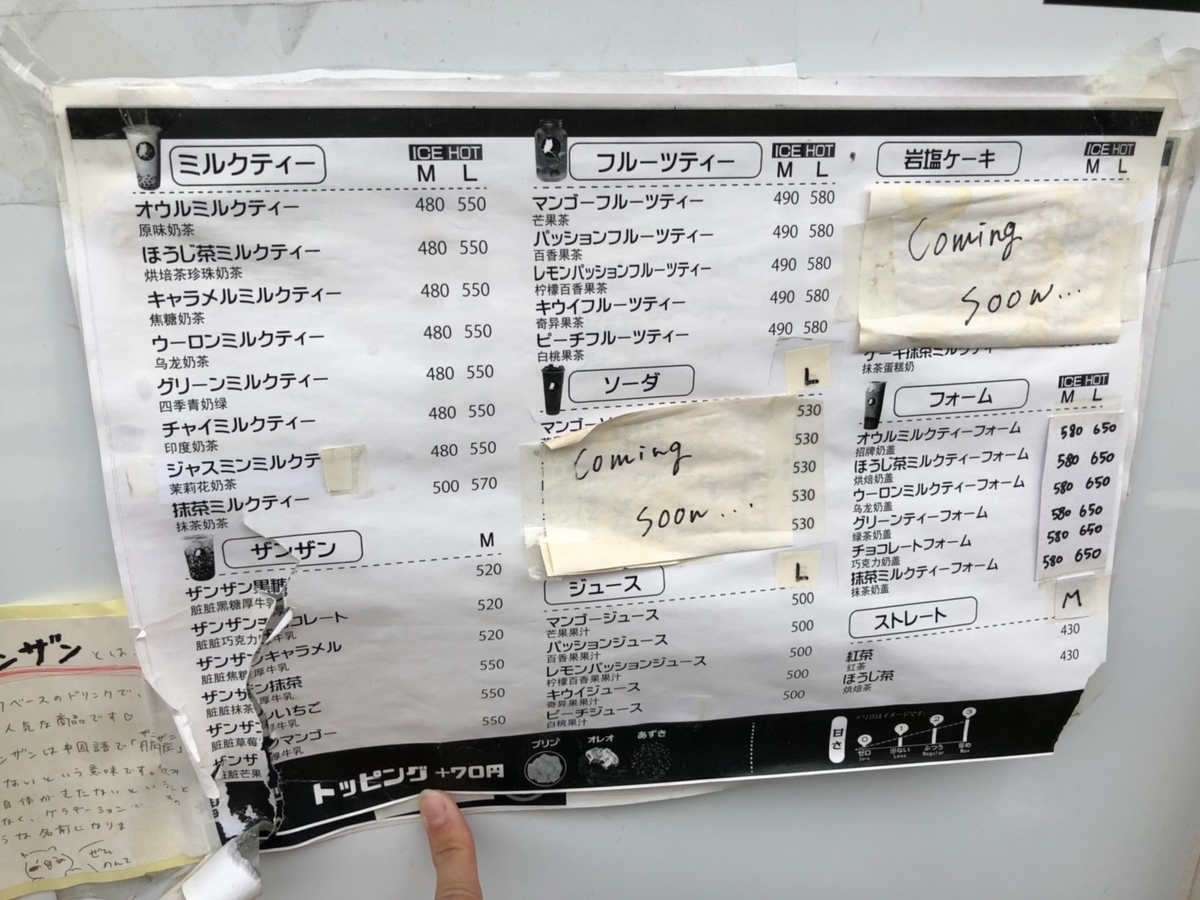 ミルクティー
ICE HOT
M L
オウルミルクティー 480 550
原味奶茶
ほうじ茶ミルクティー 480 550
烘培茶珍珠奶茶
キャラメルミルクティー 480 550
焦糖奶茶
ウーロンミルクティー 480 550
乌龙奶茶
グリーンミルクティー 480 550
四季青奶绿
チャイミルクティー 480 550
印度奶茶
ジャスミンミルクテ 480 550
茉莉花奶茶
抹茶ミルクティー 500 570
抹茶奶茶
ザンザン M
ザンザン黒糖 520
脏脏黑糖厚牛乳
ザンザンチョコレート 520
脏脏巧克力厚牛乳
ザンザンキャラメル 520
脏脏焦糖厚牛乳
ザンザン抹茶 550
脏脏抹茶厚牛乳
ザンザンいちご 550
脏脏草莓厚牛乳
ザンザ マンゴー 550
脏脏芒果 厚牛乳
フルーツティー
ICE HOT
M L
マンゴーフルーツティー 490 580
芒果茶
パッションフルーツティー 490 580
百香果茶
レモンパッションフルーツティー 490 580
柠檬百香果茶
キウイフルーツティー 490 580
奇异果茶
ピーチフルーツティー 490 580
白桃果茶
ソーダ L
マンゴー 530
530
530
530
530
Coming
soon...
ジュース L
マンゴージュース 500
芒果果汁
パッションジュース 500
百香果果汁
レモンパッションジュース 500
柠檬百香果果汁
キウイジュース 500
奇异果果汁
ピーチジュース
白桃果汁
岩塩ケーキ
ICE HOT
M L
Coming
soon...
ケーキ抹茶ミルクティー
抹茶蛋糕奶
フォーム
ICE HOT
M L
オウルミルクティーフォーム 580 650
招牌奶盖
ほうじ茶ミルクティーフォーム 580 650
烘焙奶盖
ウーロンミルクティーフォーム 580 650
乌龙奶盖
グリーンティーフォーム 580 650
绿茶奶盖
チョコレートフォーム 580 650
巧克力奶盖
抹茶ミルクティーフォーム 580 650
抹茶奶盖
ストレート M
紅茶 430
红茶
ほうじ茶 430
烘焙茶
トッピング +70円
プリン オレオ あずき
甘さ
0 1 2 3
ゼロ ふつう
Zero Less Regular Max
ンザン とは
ベースのドリンクで、
人気な商品です♡
ンザンは中国語で「
ないという意味です。